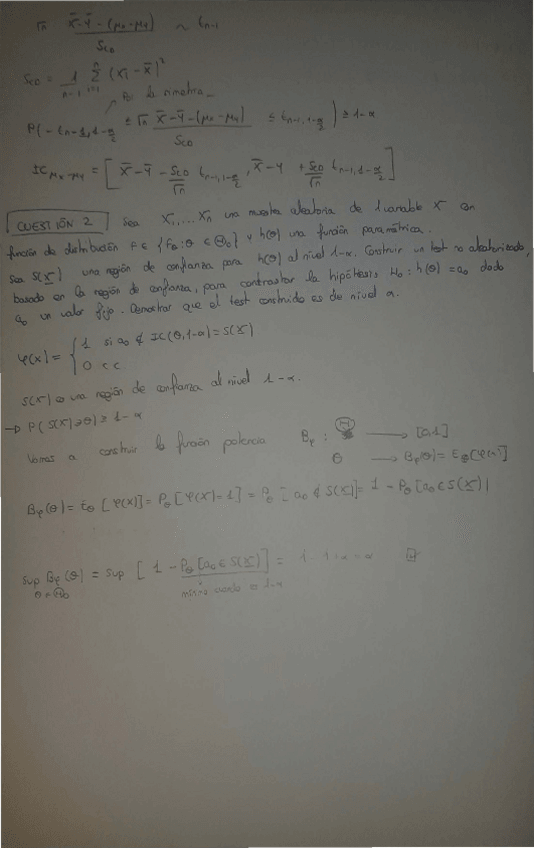 √n (x̄-ȳ-(μx-μy))/Sco ~ tn-1
Sco = 1/(n-1) Σ (xi - x̄)²
Por la simetría
P(-tn-1,1-α/2 ≤ √n (x̄-ȳ-(μx-μy))/Sco ≤ tn-1,1-α/2) ≥ 1-α
IC μx-μy = [x̄-ȳ - Sco/√n tn-1,1-α/2, x̄-y + Sco/√n tn-1,1-α/2]
CUESTIÓN 2 Sea X1,...Xn una muestra aleatoria de 1 variable X con
función de distribución P ∈ {Pθ: θ ∈ Θ} y h(θ) una función paramétrica.
Sea S(X) una región de confianza para h(θ) al nivel 1-α. Construir un test no aleatorizado,
basado en la región de confianza, para contrastar la hipótesis H0: h(θ) = a0 dado
a0 un valor fijo. Demostrar que el test construido es de nivel α.
φ(x) = { 1 si a0 ∉ IC(θ,1-α) = S(X)
0 c c
S(X) es una región de confianza al nivel 1-α.
→ P(S(X)∋θ) ≥ 1-α
Vamos a construir la función potencia Bφ: Θ → [0,1]
θ → Bφ(θ) = Eθ[φ(x)]
Bφ(θ) = Eθ[φ(X)] = Pθ[φ(X)=1] = Pθ[a0 ∉ S(X)] = 1 - Pθ[a0 ∈ S(X)]
Sup Bφ(θ) = Sup [1 - Pθ[a0 ∈ S(X)]] = 1 - 1 + α = α □
θ ∈ Θ0 mínimo cuando es 1-α